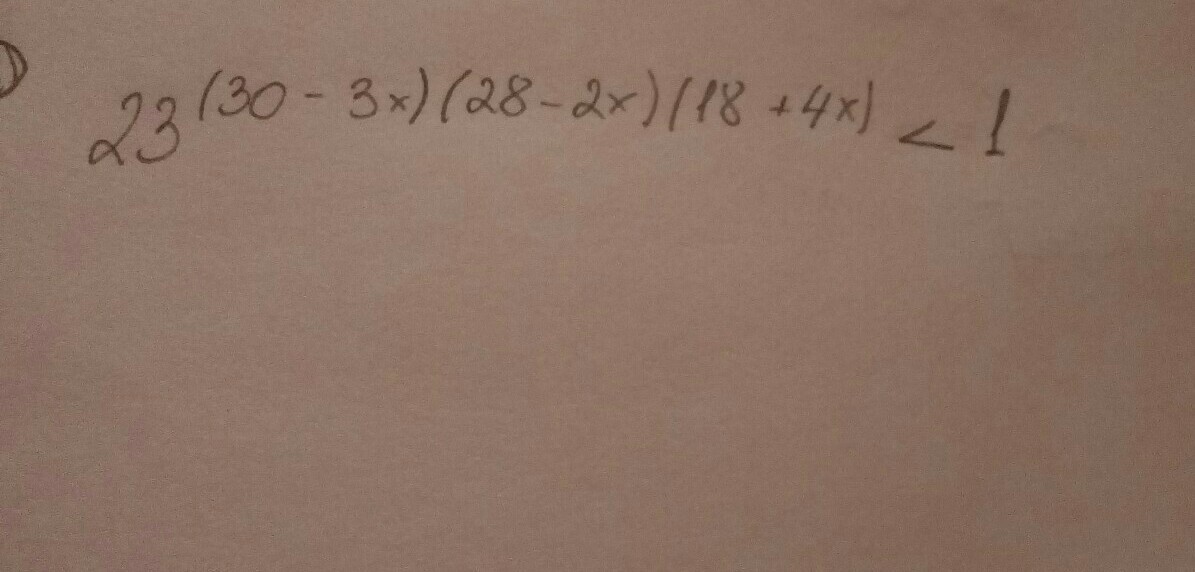 ) 23^(30 - 3x)(28 - 2x)(18 + 4x) < 1